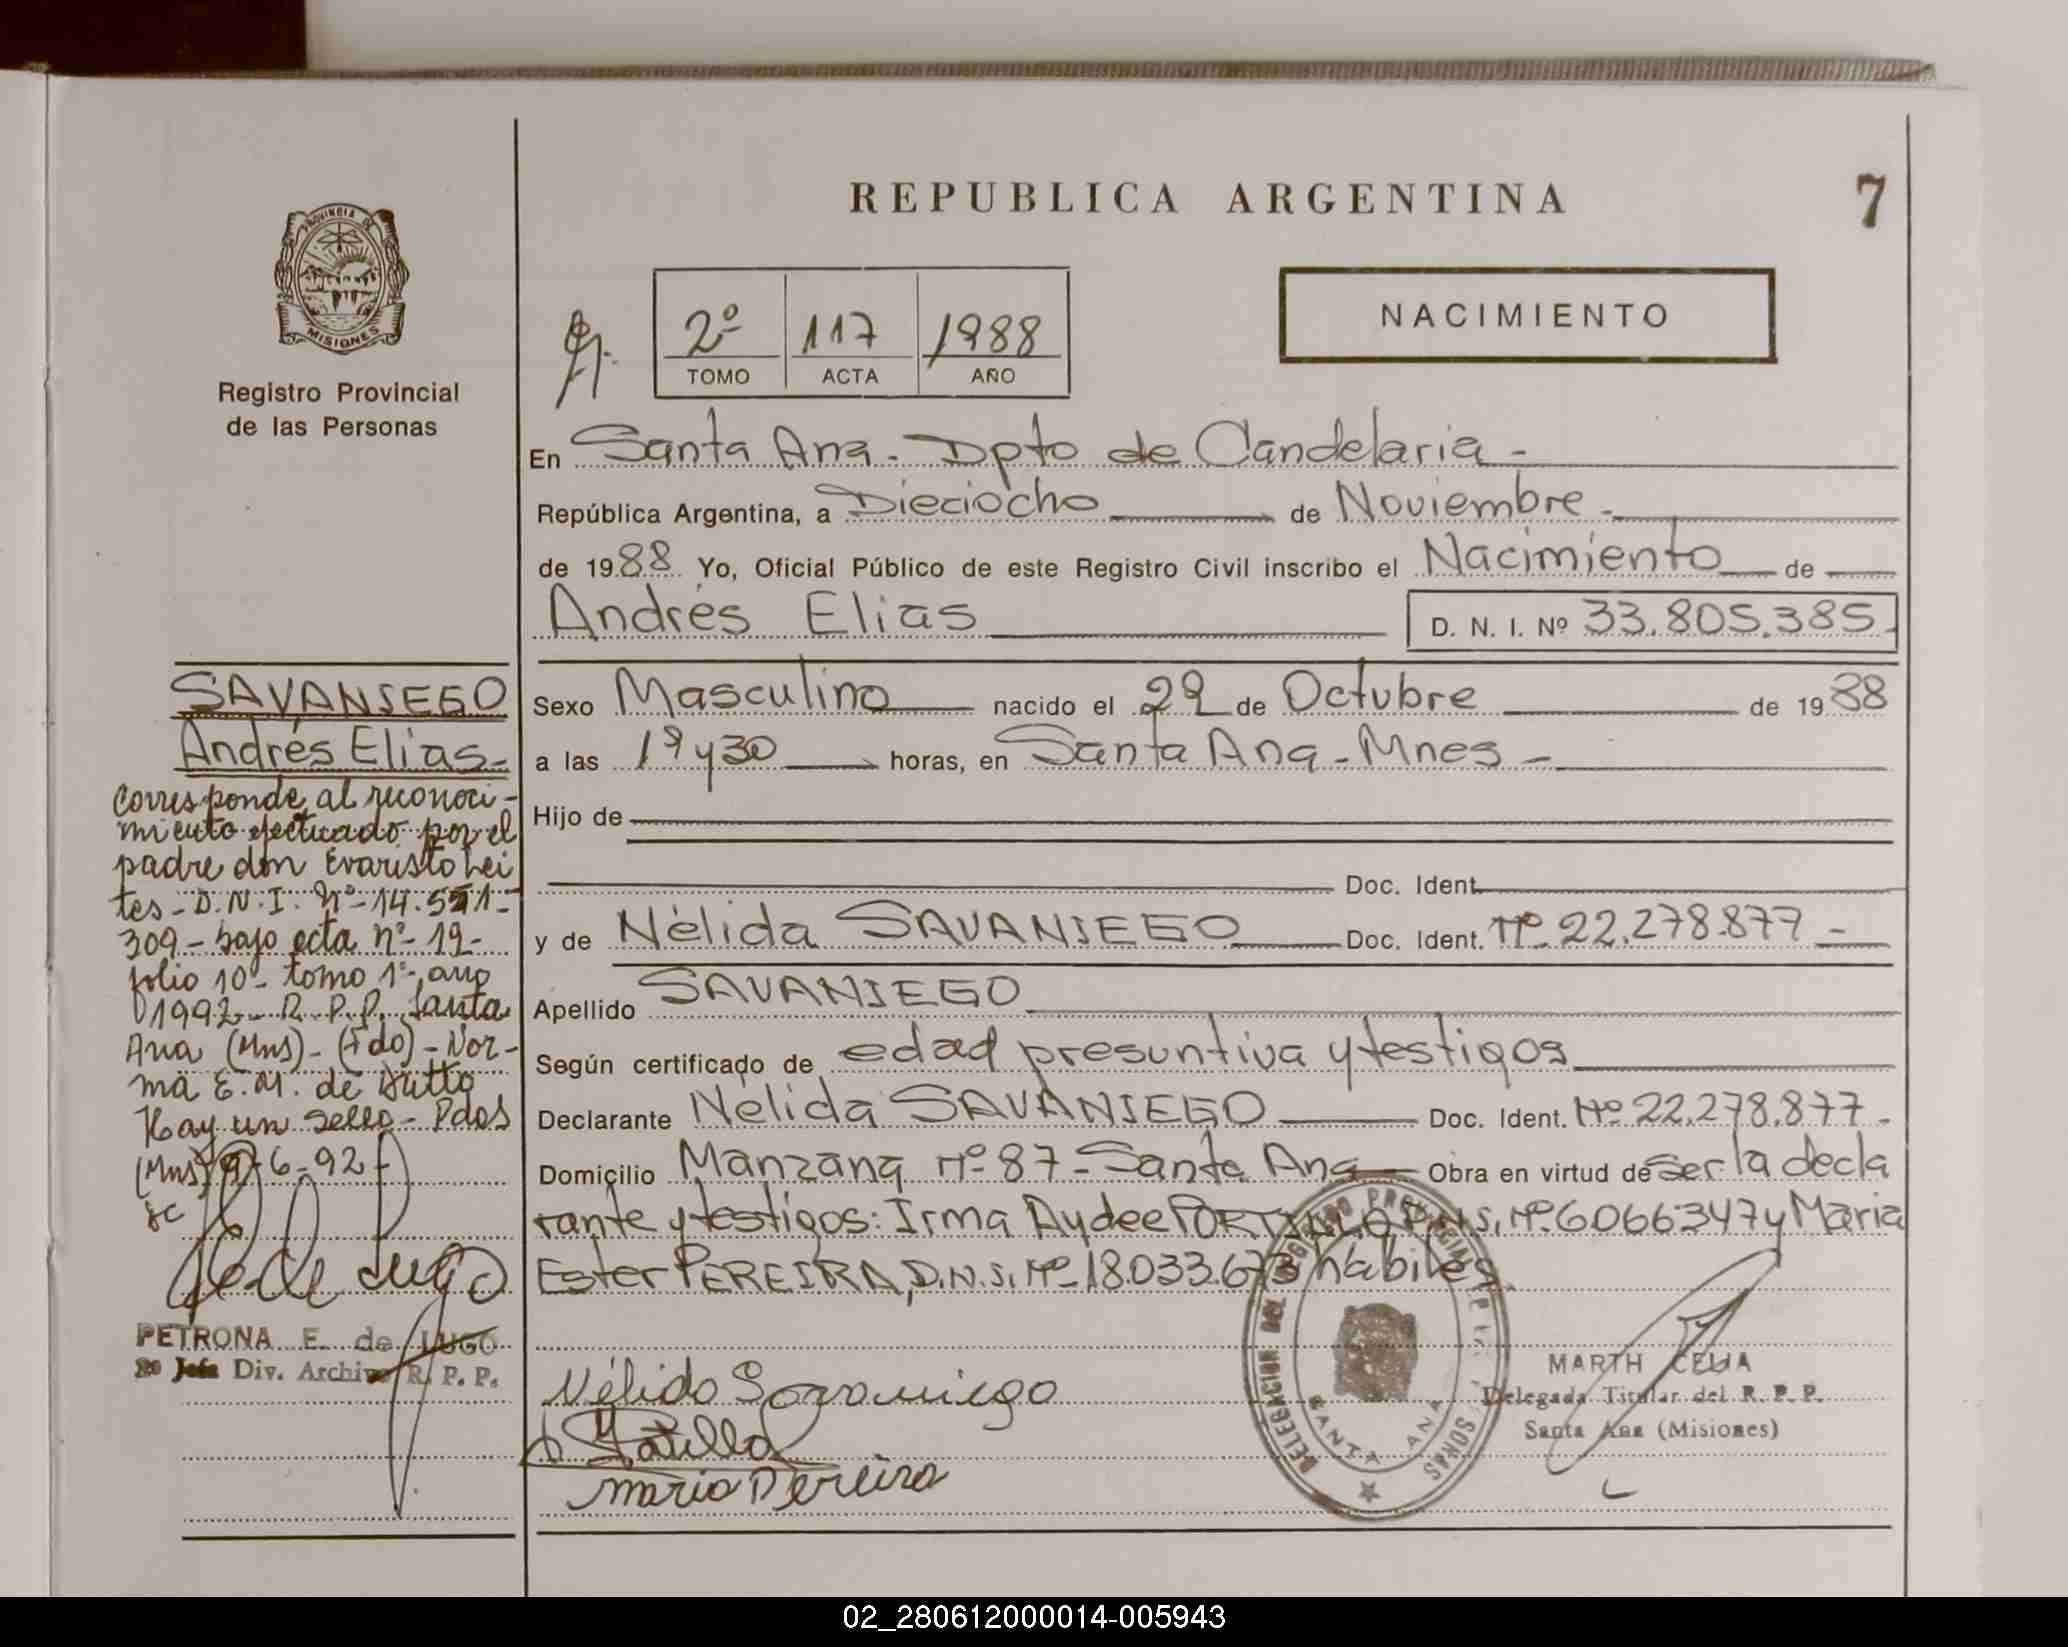 REPUBLICA ARGENTINA
7
PROVINCIA DE
MISIONES
Registro Provincial
de las Personas
2º 117 1988
TOMO ACTA AÑO
NACIMIENTO
En Santa Ana - Dpto de Candelaria -
República Argentina, a Dieciocho de Noviembre -
de 1988 Yo, Oficial Público de este Registro Civil inscribo el Nacimiento de
Andrés Elias D. N. I. Nº 33.805.385-
Sexo Masculino nacido el 29 de Octubre de 1988
a las 19 y 30 horas, en Santa Ana - Mnes -
Hijo de
Doc. Ident.
y de Nélida SAVANIEGO Doc. Ident. Nº 22.278.877 -
Apellido SAVANIEGO
Según certificado de edad presuntiva y testigos
Declarante Nélida SAVANIEGO Doc. Ident. Nº 22.278.877 -
Domicilio Manzana Nº 87 - Santa Ana Obra en virtud de ser la decla
rante y testigos: Irma Aydee PORTILLO D.N.I. Nº 6.066.347 y Maria
Ester PEREIRA, D.N.I. Nº 18.033.673 hábiles.
Nélida Savaniego
Portillo
Maria Pereira
SANTA ANA
MARTH CELIA
Delegada Titular del R. P. P.
Santa Ana (Misiones)
SAVANIEGO
Andrés Elias -
Corresponde al reconoci-
miento efectuado por el
padre don Evaristo Lei
tes - D.N.I. Nº - 14.551.
309 - bajo acta nº - 19 -
folio 10 - tomo 1º - año
1992 - R.P.P. Santa
Ana (Mns) - (Fdo) - Nor-
ma E. M. de Dutto
Hay un sello - Pdas
(Mns) 9-6-92 -
PETRONA E. de LUGO
Jefa Div. Archivo R. P. P.
02_280612000014-005943